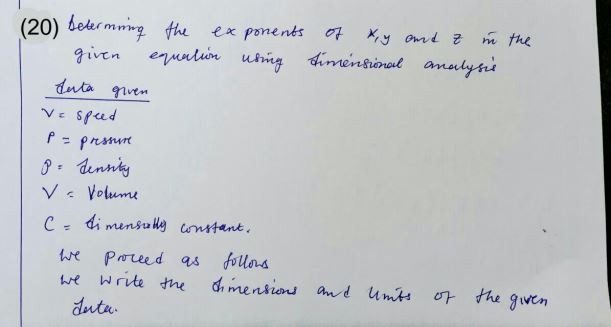 (20) Determining the exponents of x, y and z in the
given equation using dimensional analysis
Data given
V = speed
P = pressure
ρ = density
V = Volume
C = dimensionally constant.
We proceed as follows
We write the dimensions and units of the given
data.